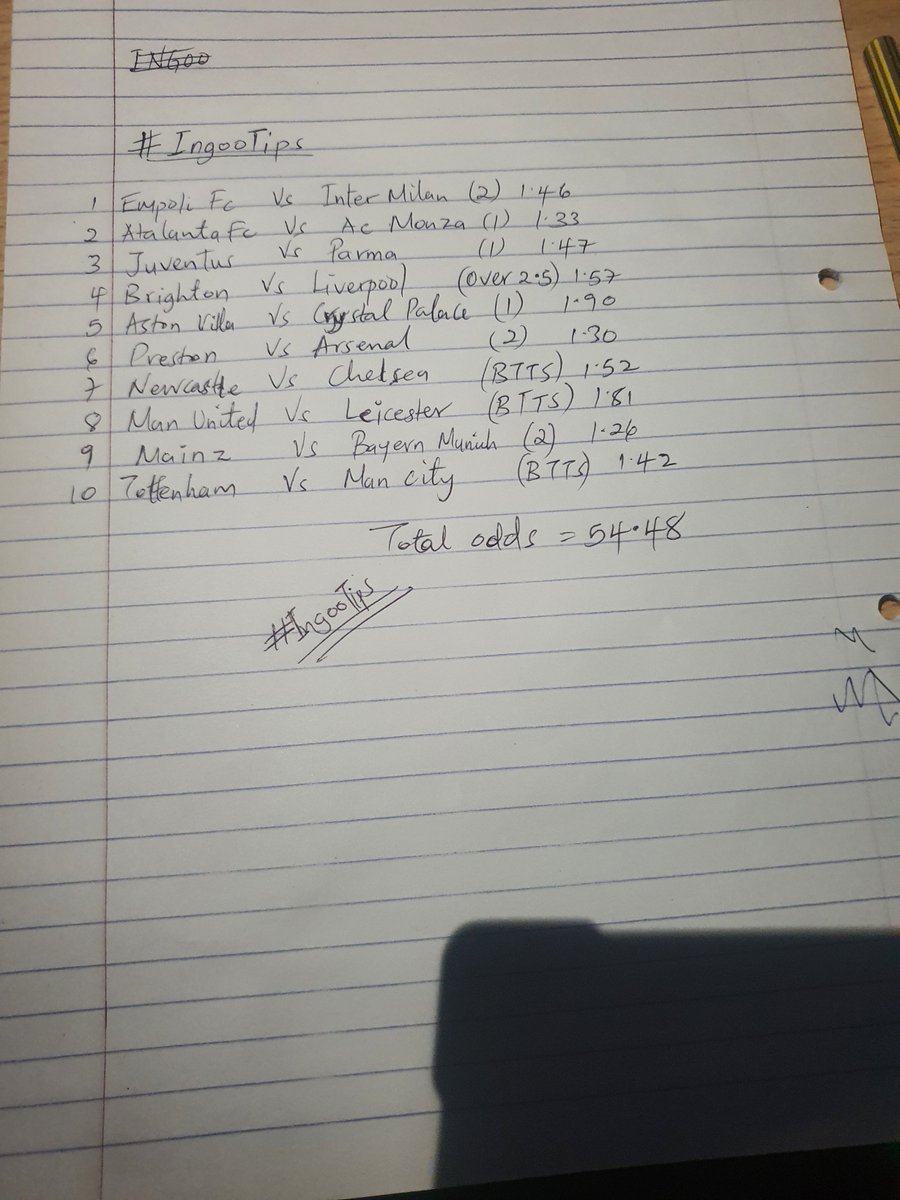 INGOO
# IngooTips
1 Empoli Fc Vs Inter Milan (2) 1.46
2 Atalanta Fc Vs Ac Monza (1) 1.33
3 Juventus Vs Parma (1) 1.47
4 Brighton Vs Liverpool (Over 2.5) 1.57
5 Aston Villa Vs Crystal Palace (1) 1.90
6 Preston Vs Arsenal (2) 1.30
7 Newcastle Vs Chelsea (BTTS) 1.52
8 Man United Vs Leicester (BTTS) 1.81
9 Mainz Vs Bayern Munich (2) 1.26
10 Tottenham Vs Man City (BTTS) 1.42
Total odds = 54.48
#IngooTips